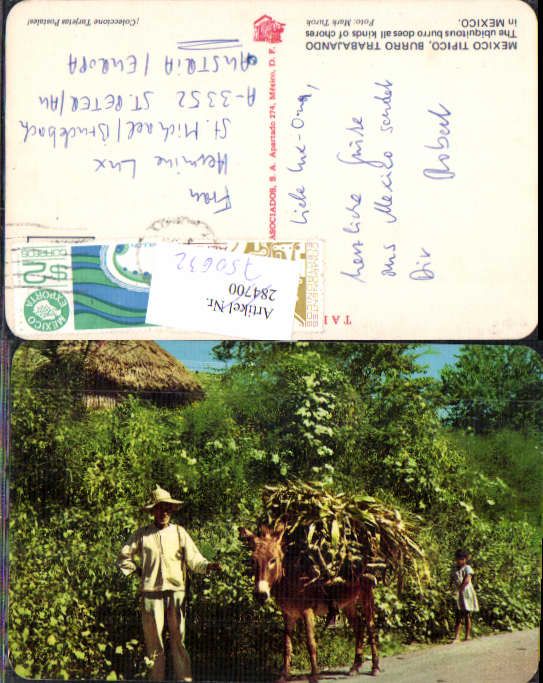 MEXICO TIPICO, BURRO TRABAJANDO
The ubiquitous burro does all kinds of chores
in MEXICO.
Foto: Mark Turok
¡Coleccione Tarjetas Postales!
ASOCIADOS, S. A. Apartado 274, México, D. F.
Liebe Lux-Oma,
herzliche Grüße
aus Mexico sendet
Dir
Robert
Frau
Hermine Lux
St. Michael/Bruckbach
A-3352 ST. PETER/AU
AUSTRIA/EUROPA
MEXICO
EXPORTA
$2
CORREOS
Artikel-Nr.
284700
750632
TAI